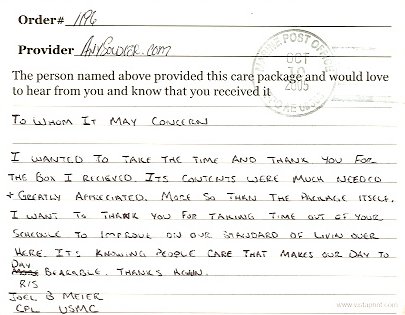 Order# 1196
Provider AnySoldier.com
The person named above provided this care package and would love
to hear from you and know that you received it
TO WHOM IT MAY CONCERN
I WANTED TO TAKE THE TIME AND THANK YOU FOR
THE BOX I RECIEVED. ITS CONTENTS WERE MUCH NEEDED
+ GREATLY APPRECIATED. MORE SO THAN THE PACKAGE ITSELF.
I WANT TO THANK YOU FOR TAKING TIME OUT OF YOUR
SCHEDULE TO IMPROVE ON OUR STANDARD OF LIVIN OVER
HERE. ITS KNOWING PEOPLE CARE THAT MAKES OUR DAY TO
DAY
BEARABLE. THANKS AGAIN.
R/S
JOEL B MEIER
CPL USMC
POST OFFICE
OCT
2005